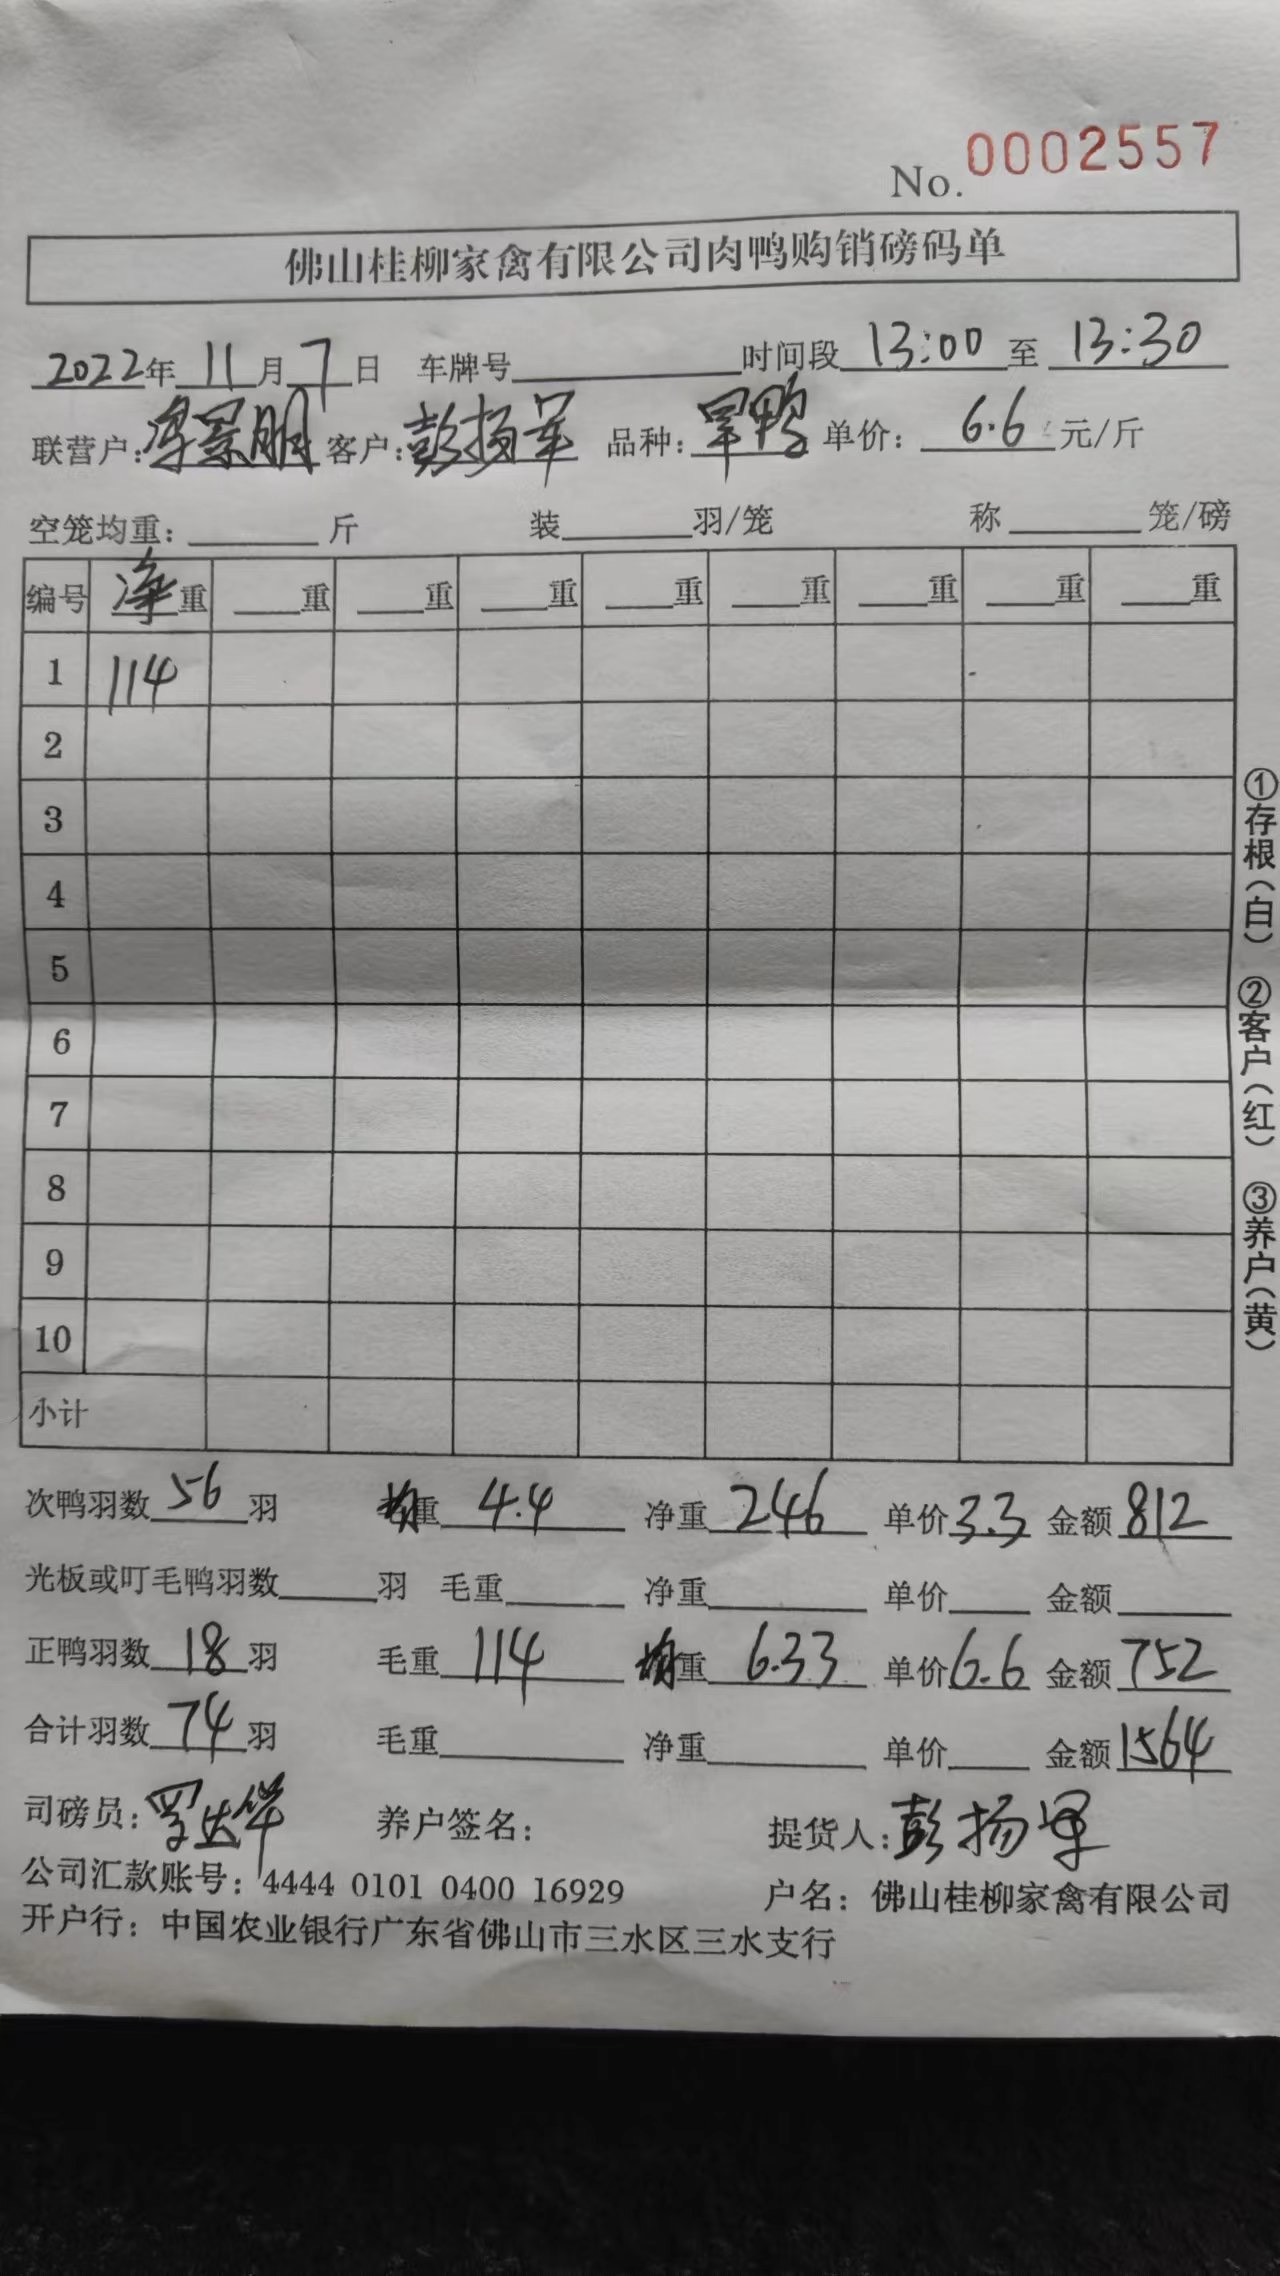 No. 0002557
佛山桂柳家禽有限公司肉鸭购销磅码单
2022年11月7日 车牌号 时间段 13:00 至 13:30
联营户: 景朋 客户: 彭扬军 品种: 旱鸭 单价: 6.6 元/斤
空笼均重: 斤 装 羽/笼 称 笼/磅
编号 净重 重 重 重 重 重 重 重 重
1 114
2
3
4
5
6
7
8
9
10
小计
①存根(白) ②客户(红) ③养户(黄)
次鸭羽数 56 羽 均重 4.4 净重 246 单价 3.3 金额 812
光板或叮毛鸭羽数 羽 毛重 净重 单价 金额
正鸭羽数 18 羽 毛重 114 均重 6.33 单价 6.6 金额 752
合计羽数 74 羽 毛重 净重 单价 金额 1564
司磅员: 养户签名: 提货人: 彭扬军
公司汇款账号: 4444 0101 0400 16929 户名: 佛山桂柳家禽有限公司
开户行: 中国农业银行广东省佛山市三水区三水支行